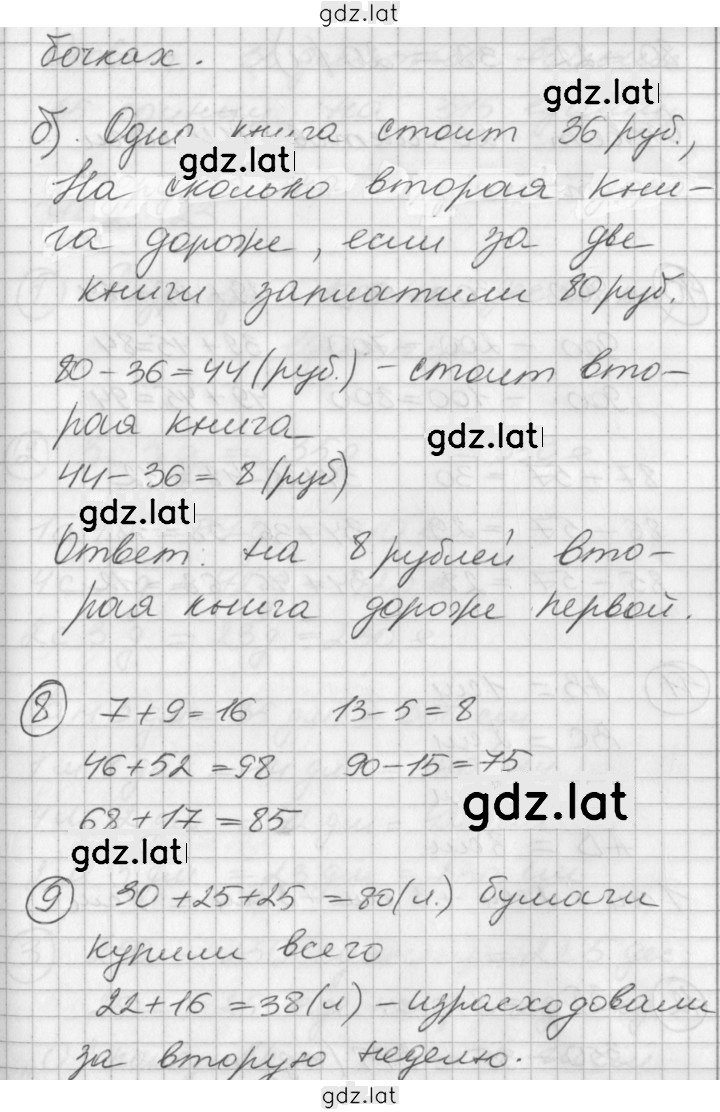 gdz.lat
бочках.
gdz.lat
б). Одна книга стоит 36 руб.,
gdz.lat
На сколько вторая кни-
га дороже, если за две
книги заплатили 80 руб.
80-36=44(руб.) - стоит вто-
рая книга
gdz.lat
44-36= 8(руб)
gdz.lat
Ответ: на 8 рублей вто-
рая книга дороже первой.
8 7+9=16 13-5=8
46+52=98 90-15=75
gdz.lat
68+17=85
gdz.lat
9 30+25+25=80(л.) бумаги
купили всего
22+16=38(л) - израсходовали
за вторую неделю.
gdz.lat